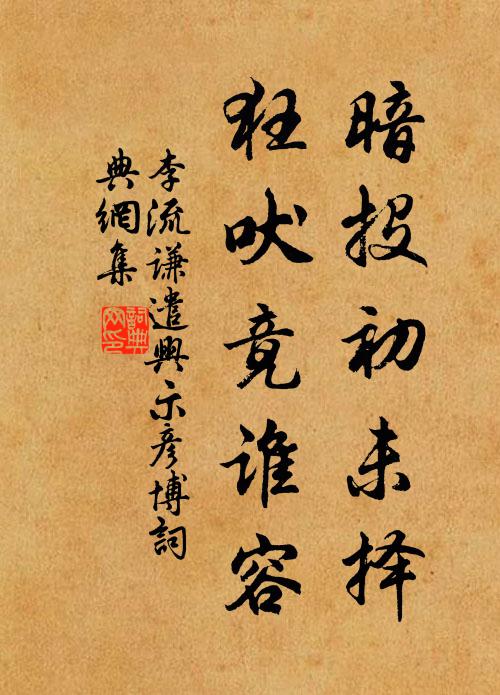 暗投初未择
狂吠竟谁容
李流谦遣興示彥博詞
典網集
詞典
网印